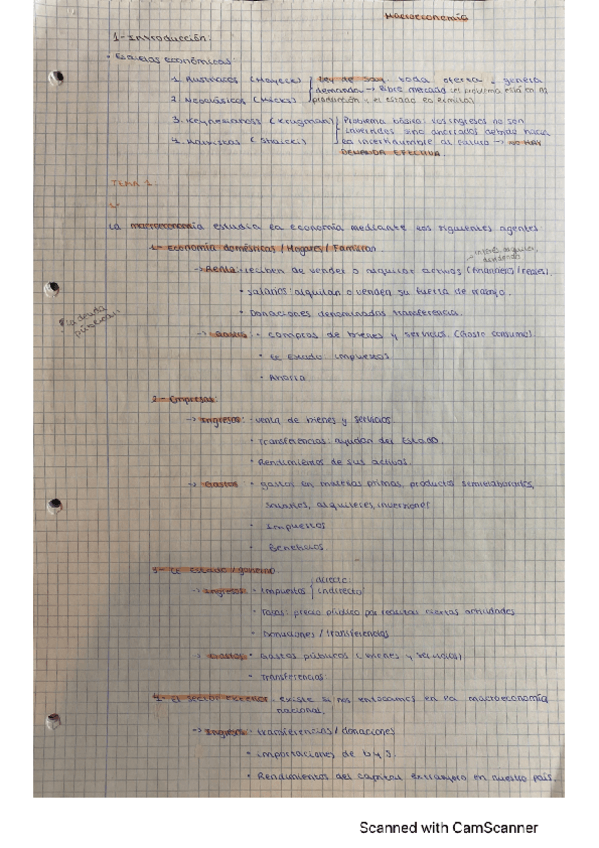 Macroeconomía
1- Introducción:
- Escuelas económicas:
1. Austriacos (Hayeck)
2. Neoclásicos (Hicks)
Ley de Say: toda oferta genera
demanda → libre mercado
producción y el estado
3. Keynesianos (Krugman)
4. Marxistas (Shaikh)
Problema básico: los ingresos no son
invertidos sino ahorrados debido
la incertidumbre al futuro → NO HAY
DEMANDA EFECTIVA.
TEMA 1.
La macroeconomía estudia la economía mediante los siguientes agentes:
1- Economía domésticas / Hogares / Familias.
→ Renta: reciben de vender o alquilar activos (financieros/reales).
• Salarios: alquilan o venden su fuerza de trabajo.
• Donaciones denominadas transferencia.
→ Gastos: • compras de bienes y servicios. (Gasto consumo).
• Al Estado: impuestos
• Ahorra
2- Empresas:
→ Ingresos: • venta de bienes y servicios.
• Transferencias: ayudan del Estado.
• Rendimientos de sus activos.
→ Gastos • gastos en materias primas, productos semielaborados,
salarios, alquileres, inversiones
• Impuestos
• Beneficios.
3- El Estado / gobierno.
→ Ingresos: • Impuestos
directo
indirecto
• Tasas: precio público por realizar ciertas actividades
• Donaciones / transferencias
→ Gastos • Gastos públicos (bienes y servicios)
• Transferencias
4- El sector exterior. existe si nos enfocamos en la macroeconomía
nacional.
→ Ingreso: • transferencias / donaciones
• importaciones de b y s.
• Rendimientos del capital extranjero en nuestro país.
Scanned with CamScanner